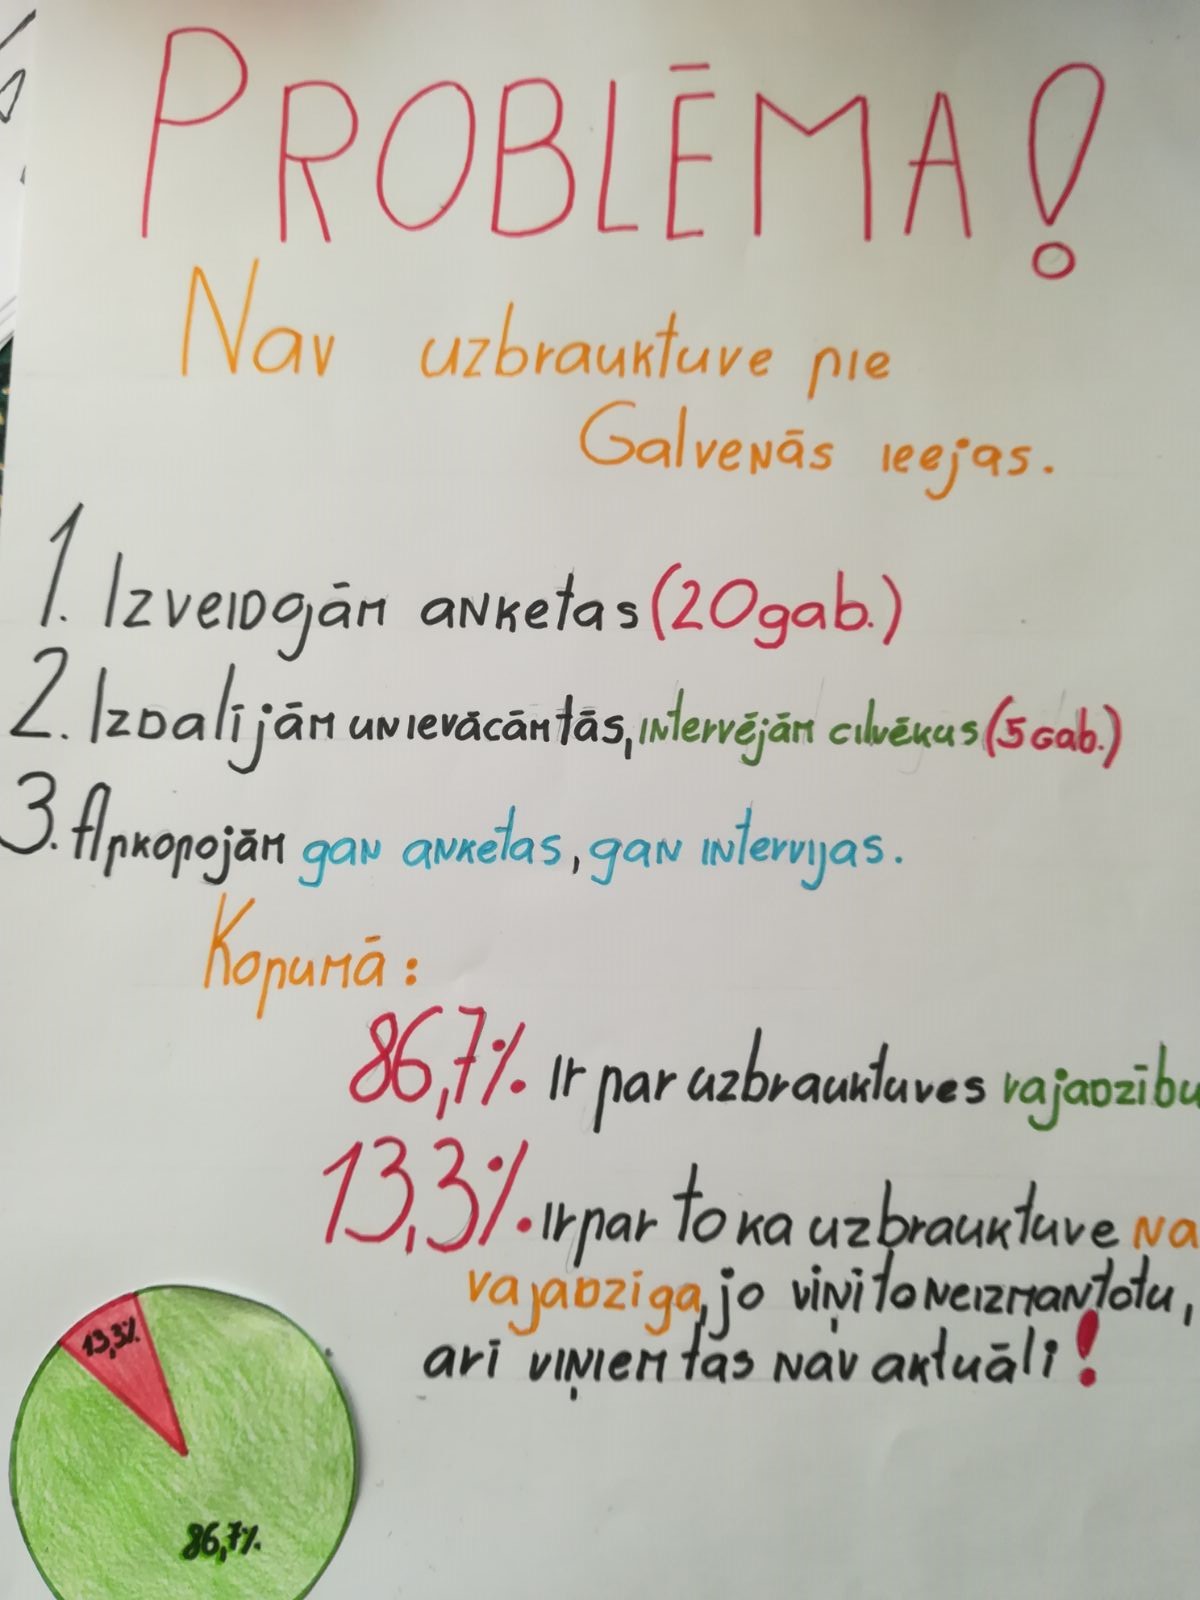 PROBLĒMA!
Nav uzbrauktuve pie
Galvenās ieejas.
1. Izveidojām anketas (20gab.)
2. Izdalījām un ievācām tās, intervējām cilvēkus (5gab.)
3. Apkopojām gan anketas, gan intervijas.
Kopumā:
86,7% Ir par uzbrauktuves vajadzību
13,3% Ir par to ka uzbrauktuve na
vajadziga, jo viņi to neizmantotu,
arī viņiem tas nav aktuāli!
13,3%
86,7%